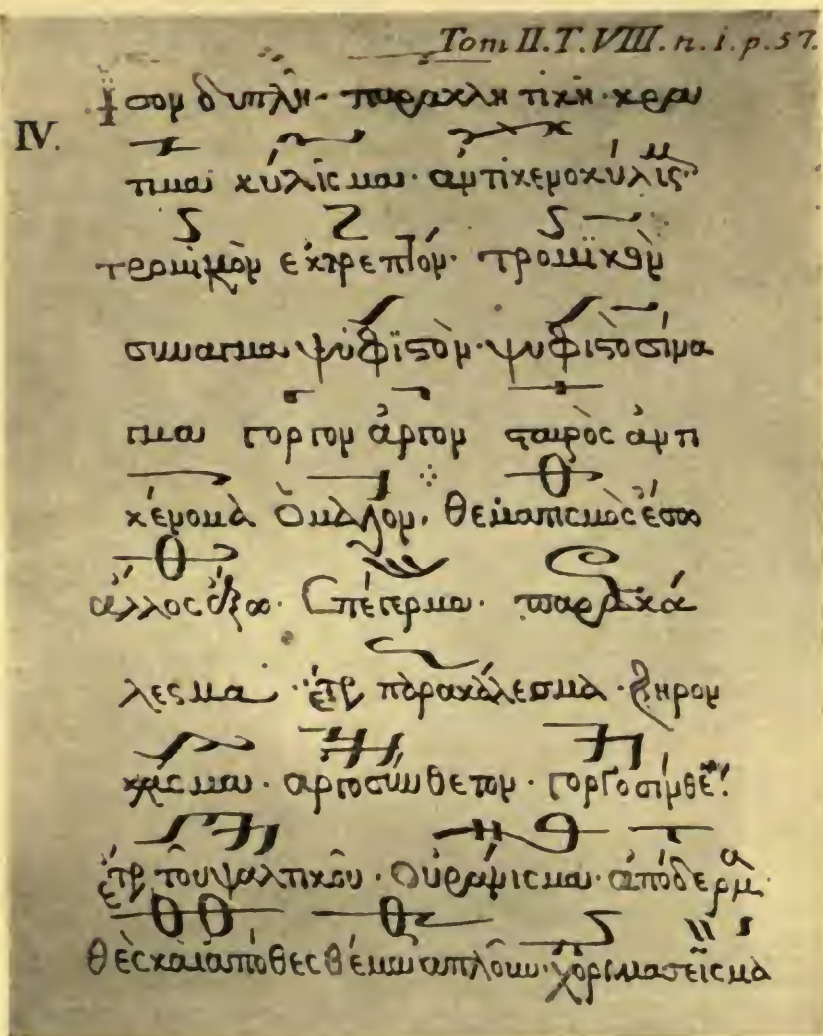 Tom II. T. VIII. n. i. p. 57.
ἶσον δυπλῆ· παρακλη τικὴ· κρα
IV.
τιμαι κύλισμαι· ἀντικενοκύλισ
εκτρεπτόν· τρομικὸν
σιναγμα ψυφιστὸν· ψυφιστοσίνα
γμαι γοργον ἀργον σταυρὸς ἀντι
κένομα ὁμαλον. θεματισμὸς ἔσω
ἄλλος ἔξω. Επέγερμα. παρακά
λεσμα· ἕτρ παρακάλεσμα· ξηρον
κλασμαι. αργοσύνθετον. γοργοσύνθε
ἕτρ τοῦ ψαλτικοῦ. Οὐράνισμαι. ἀπόδερμα
θὲς καὶ ἀπόθες θέμα απλοῦν. σεῖσμα